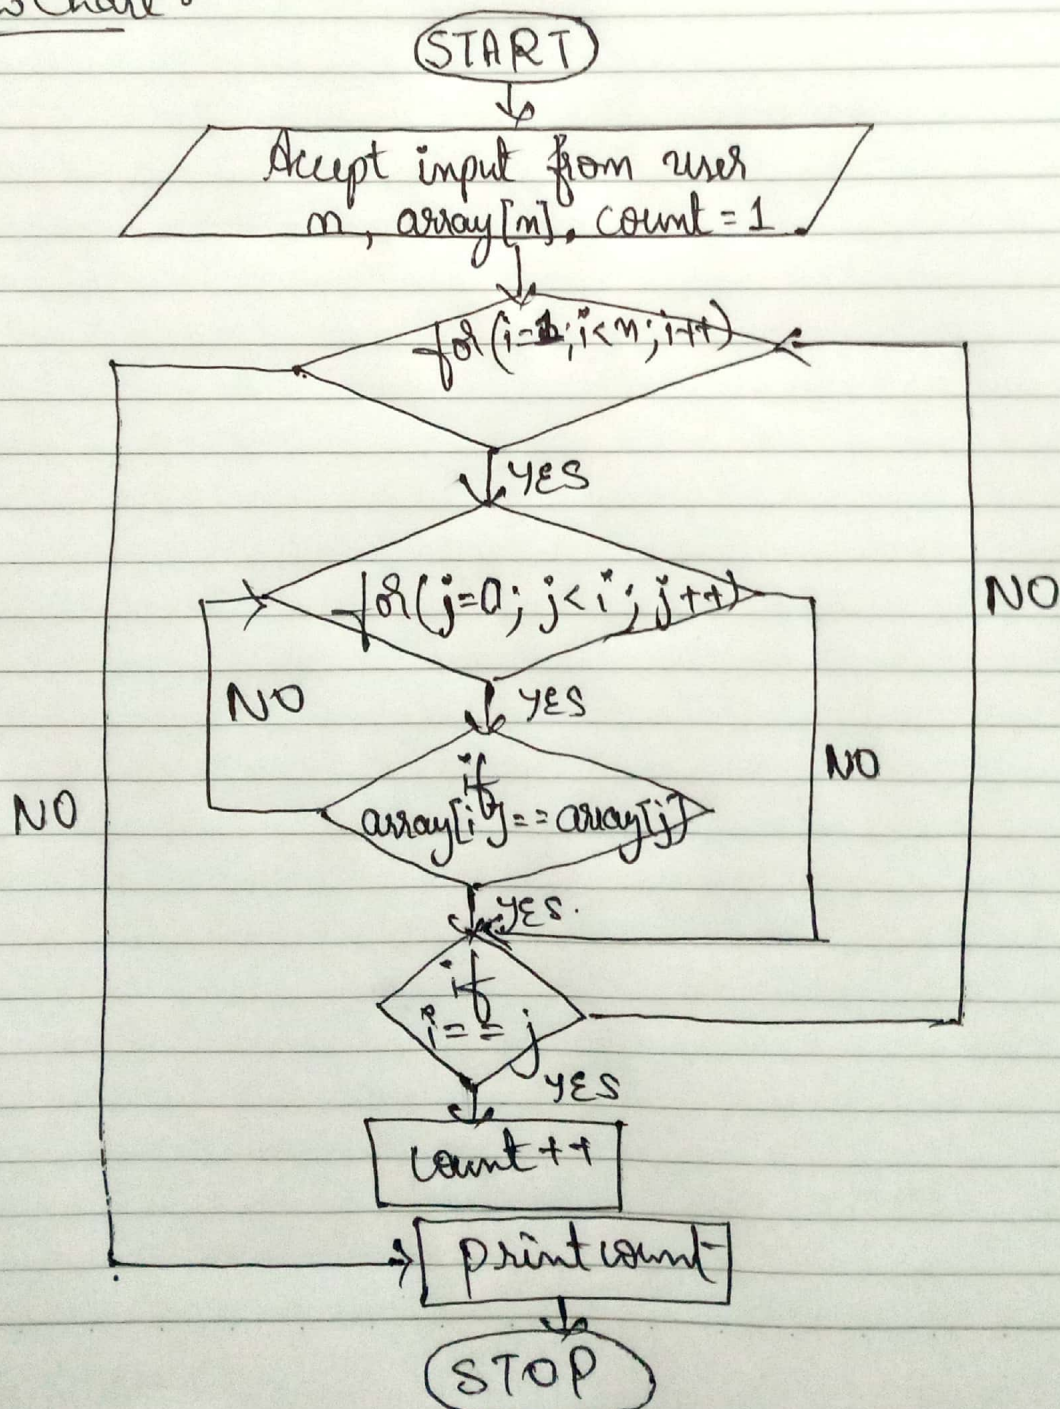 Chart:
START
Accept input from user
n, array[n], count = 1
for(i=1;i<n;i++)
YES
for(j=0; j<i; j++)
NO
NO
YES
NO
NO
if
array[i]==array[j]
YES.
if
i==j
YES
count++
print count
STOP